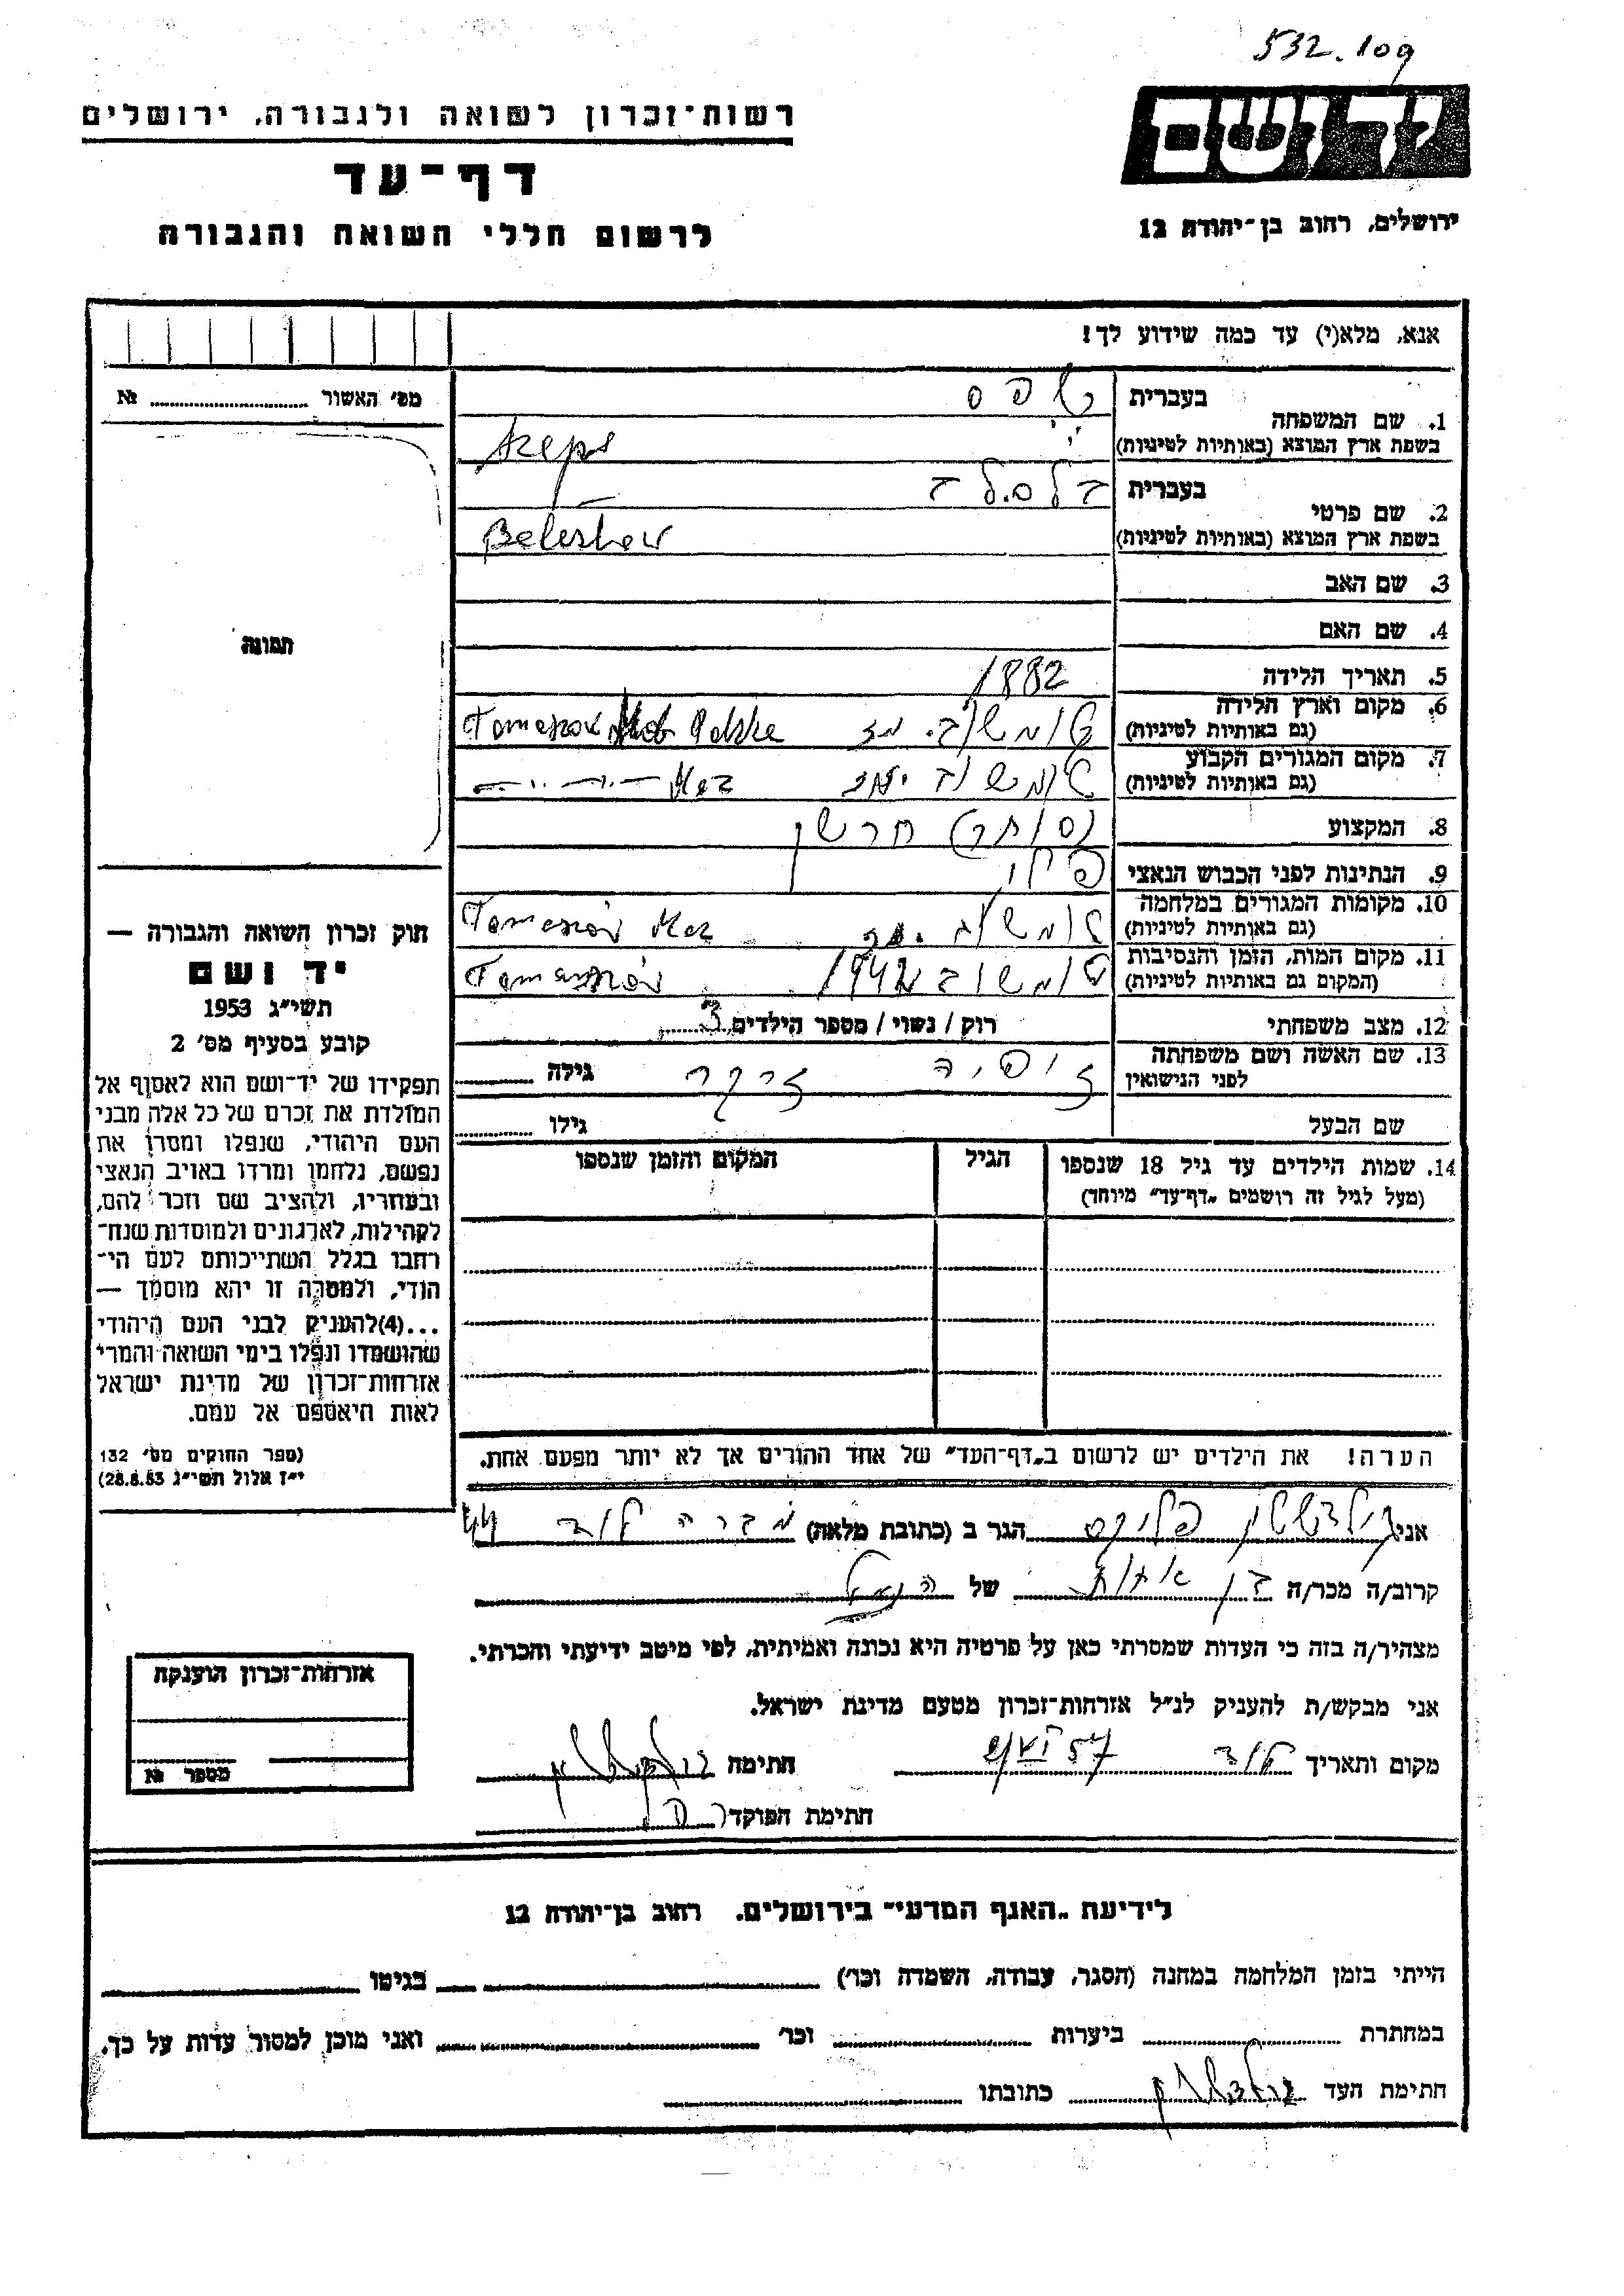 532.109
רשות־זכרון לשואה ולגבורה, ירושלים
יד ושם
דף־עד
לרשום חללי השואה והגבורה
ירושלים, רחוב בן־יהודה 12
אנא, מלא(י) עד כמה שידוע לך!
מס׳ האשור № 
בעברית
1. שם המשפחה
בשפת ארץ המוצא (באותיות לטיניות)
Szeps
בעברית
2. שם פרטי
בשפת ארץ המוצא (באותיות לטיניות)
3. שם האב
4. שם האם
תמונה
5. תאריך הלידה 1882
6. מקום וארץ הלידה
(גם באותיות לטיניות) טומשוב. מז Polska
7. מקום המגורים הקבוע
(גם באותיות לטיניות) טומשוב Maz
8. המקצוע (סוחר) חרשן
9. הנתינות לפני הכבוש הנאצי פולני
10. מקומות המגורים במלחמה
(גם באותיות לטיניות) טומשוב Tomaszów Maz
11. מקום המות, הזמן והנסיבות
(המקום גם באותיות לטיניות) טומשוב 1942 Tomaszów
12. מצב משפחתי רוק / נשוי / מספר הילדים 3
13. שם האשה ושם משפחתה
לפני הנישואין גילה
שם הבעל גילו
14. שמות הילדים עד גיל 18 שנספו הגיל המקום והזמן שנספו
(מעל לגיל זה רושמים „דף־עד״ מיוחד)
הערה! את הילדים יש לרשום ב„דף־העד״ של אחד ההורים אך לא יותר מפעם אחת.
חוק זכרון השואה והגבורה —
יד ושם
תשי״ג 1953
קובע בסעיף מס׳ 2
תפקידו של יד־ושם הוא לאסוף אל
המולדת את זכרם של כל אלה מבני
העם היהודי, שנפלו ומסרו את
נפשם, נלחמו ומרדו באויב הנאצי
ובעוזריו, ולהציב שם וזכר להם,
לקהילות, לארגונים ולמוסדות שנח־
רבו בגלל השתייכותם לעם הי־
הודי, ולמטרה זו יהא מוסמך —
...(4)להעניק לבני העם היהודי
שהושמדו ונפלו בימי השואה והמרי
אזרחות־זכרון של מדינת ישראל
לאות היאספם אל עמם.
(ספר החוקים מס׳ 132
י״ז אלול תשי״ג 28.8.53)
אני גולדשטיין פליקס הגר ב (כתובת מלאה) לוד 44
קרוב/ה מכר/ה בן אחות של הנ״ל
מצהיר/ה בזה כי העדות שמסרתי כאן על פרטיה היא נכונה ואמיתית, לפי מיטב ידיעתי והכרתי.
אני מבקש/ת להעניק לנ״ל אזרחות־זכרון מטעם מדינת ישראל.
מקום ותאריך לוד חתימה
חתימת הפוקד
אזרחות־זכרון הוענקה
מספר №
לידיעת „האגף המדעי״ בירושלים. רחוב בן־יהודה 12
הייתי בזמן המלחמה במחנה (הסגר, עבודה, השמדה וכו׳) בגיטו
במחתרת ביערות וכו׳ ואני מוכן למסור עדות על כך.
חתימת העד כתובתו